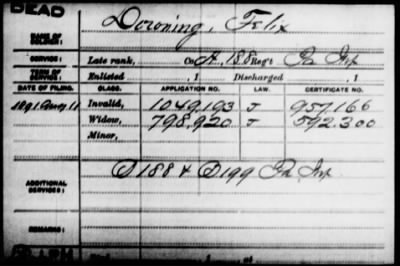 DEAD
Downing, Felix
NAME OF SOLDIER:
SERVICE: Late rank, Co. A, 188 Reg't Pa Inf
TERM OF SERVICE: Enlisted , 1 Discharged , 1
DATE OF FILING. CLASS. APPLICATION NO. LAW. CERTIFICATE NO.
1891 Aug 11 Invalid, 1049,193 J 957,166
Widow, 798,920 J 592.300
Minor,
D 188 & D 199 Pa Inf
ADDITIONAL SERVICES:
REMARKS: